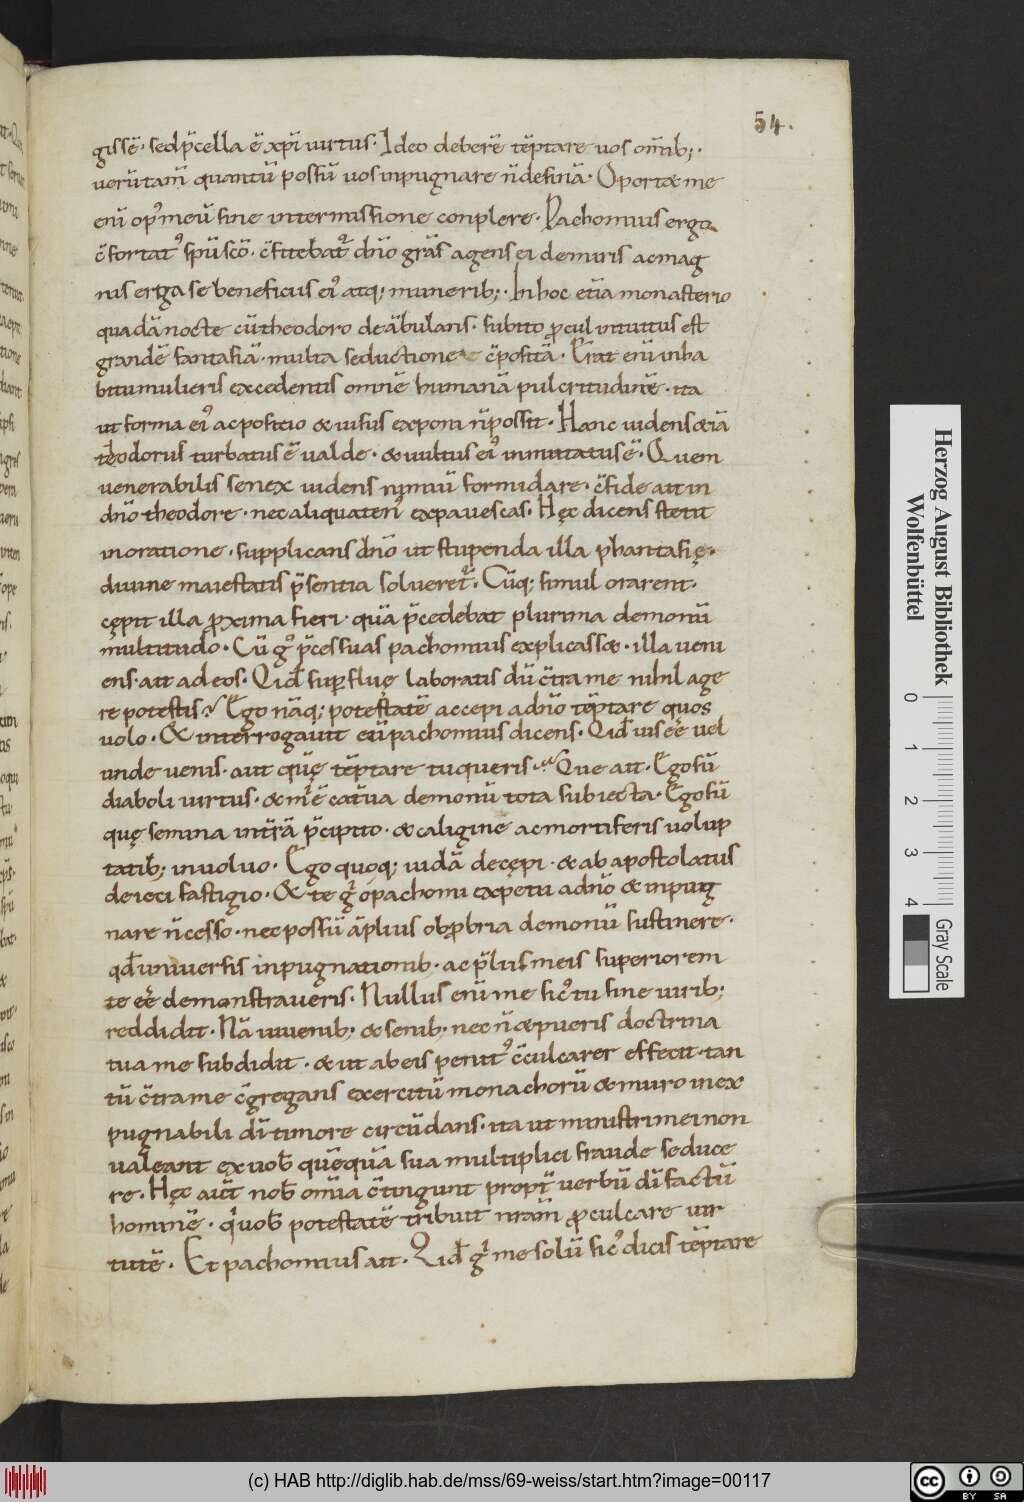 54.
gissẽ· sed p̃cella ẽ xp̃i uirtus· Ideo deberẽ tẽptare uos om̃ib;·
uerũtam̃ quantũ possũ uos inpugnare ñ desinã· Oportæ me
enĩ op᾽ meũ sine intermissione conplere· Pachomius erga
c̃fortat᾽ sp̃u sc̃o· c̃fitebat᾽ dñο grãs agens ei de miris ac mag
nis erga se beneficiis ei᾽ atq; munerib;· In hoc etiã monasterio
quadã nocte cũ theodoro deãbulans· subito procul intuitus est
grandẽ fantasiã· multa seductione c̃positã· Erat enĩ in ha
bitu mulieris excedentis omnẽ humanã pulcritudinẽ· ita
ut forma ei᾽ ac positio & uisus exponi ñ possit· Hanc uidens &iã
theodorus turbatus ẽ ualde· & uultus ei᾽ inmutatus ẽ· Quem
uenerabilis senex uidens nimiũ formidare· c̃fide ait in
dñο theodore· nec aliquaten᾽ expauescas· Hęc dicens stetit
in oratione· supplicans dñο ut stupenda illa phantasię·
diuine maiestatis p̃sentia solueret᾽· Cũq; simul orarent·
cępit illa proxima fieri· quã p̃cedebat plurima demonũ
multitudo· Cũ g᾽ p̃ces suas pachomius explicassæ· illa ueni
ens· ait ad eos· Quid superfluę laboratis dũ c̃tra me nihil age
re potestis? Ego nãq; potestatẽ accepi a dñο tẽptare quos
uolo· & interrogauit eũ pachomius dicens· Quid uis eẽ uel
unde uenis· aut quẽ tẽptare tu queris? Que ait· Ego sũ
diaboli uirtus· & m᾽ ẽ caťua demonũ tota subiecta· Ego sũ
quę semina intr̃ã p̃cipito· & caligine ac mortiferis uolup
tatib; inuoluo· Ego quoq; iudã decępi· & ab apostolatus
deieci fastigio· & te g᾽ o pachomi expetii a dñο & inpug
nare ñ cesso· nec possũ ãplius obprobria demonũ sustinere·
qd̃ uniuersis inpugnationib· ac p̃lus meis superiorem
te eẽ demonstraueris· Nullus enĩ me sic᾽ tu sine uirib;
reddidit· Nã iuuenib; & senib; nec ñ & pueris doctrina
tua me subdidit· & ut ab eis penit᾽ c̃culcarer effecit· tan
tũ c̃tra me c̃gregans exercitũ monachorũ & muro inex
pugnabili dĩ timore circũdans· ita ut ministri mei non
ualeant ex uob᾽ quẽquã sua multiplici fraude seduce
re· Hęc aut᾽ nob᾽ om̃ia c̃tingunt propt᾽ uerbũ dĩ factũ
hominẽ· q᾽ uob᾽ potestatẽ tribuit nram̃ proculcare uir
tutẽ· Et pachomius ait· Quid g᾽ me solũ sic᾽ dicis tẽptare
Herzog August Bibliothek
Wolfenbüttel
0 1 2 3 4
Gray Scale
(c) HAB http://diglib.hab.de/mss/69-weiss/start.htm?image=00117
cc BY SA